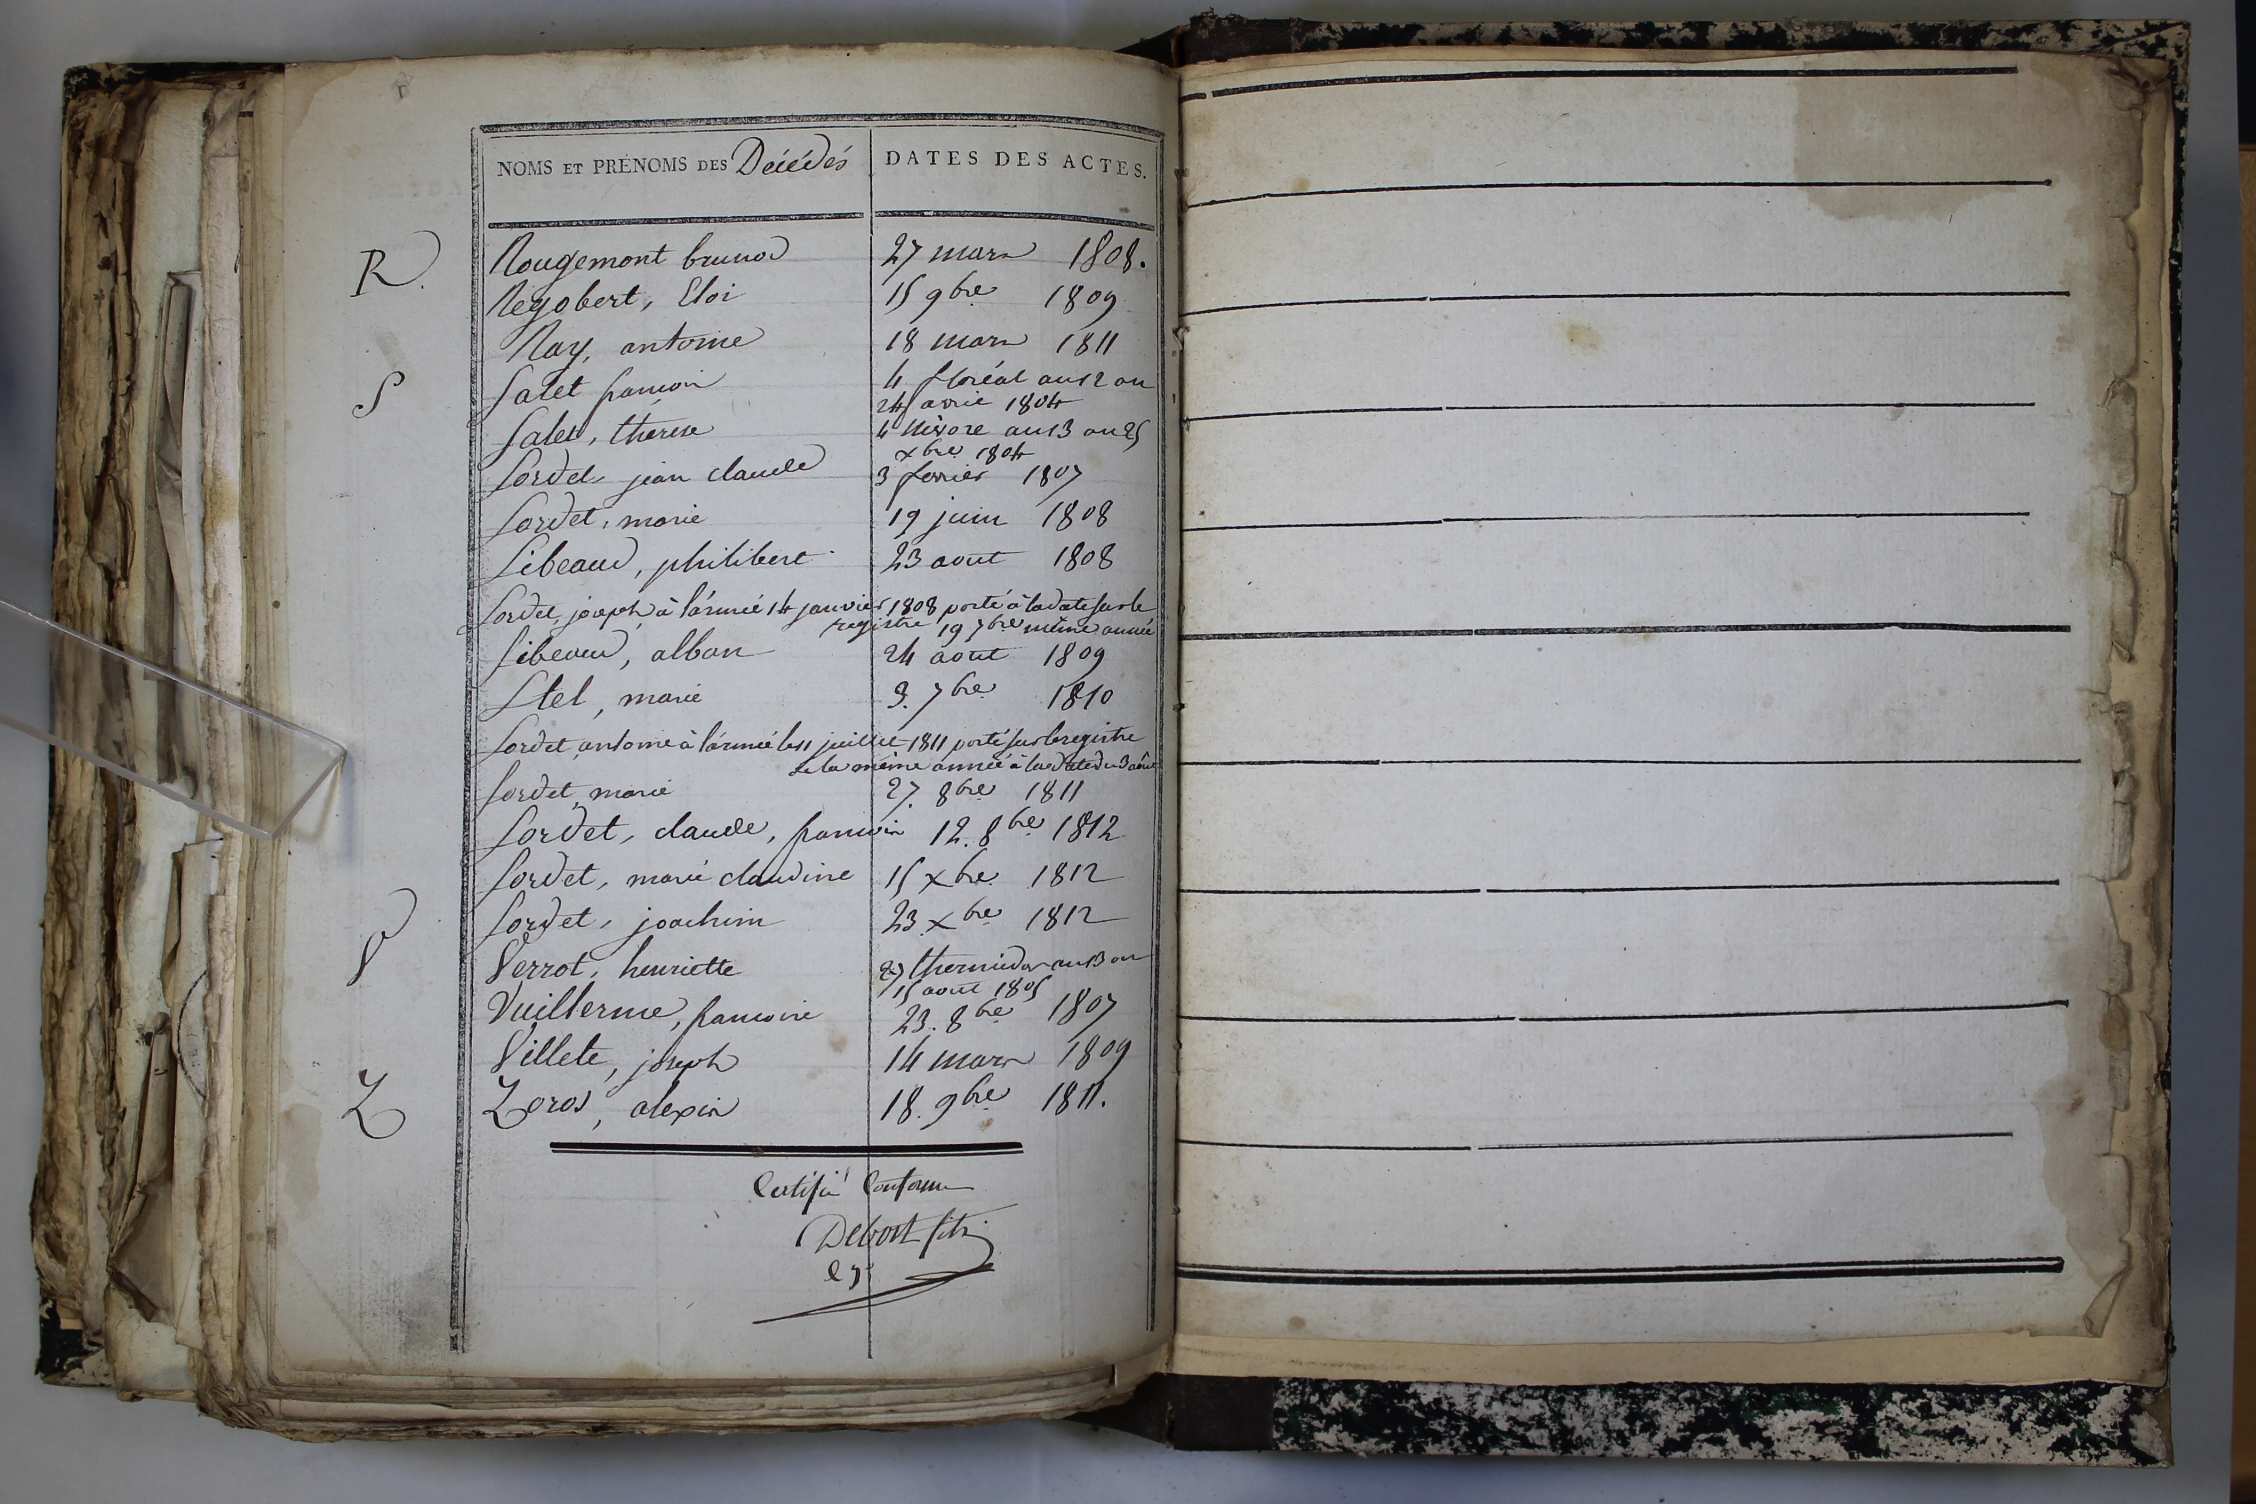 NOMS ET PRÉNOMS DES Décédés DATES DES ACTES.
R. Rougemont bruno 27 mars 1808.
Regobert, Eloi 15 9bre 1809
Ray, antoine 18 mars 1811
S Salet francois 4 floréal an 12 ou
24 avril 1804
Salet, thérèse 4 nivose an 13 ou 25
xbre 1804
Sordet, jean claude 3 fevrier 1807
Sordet, marie 19 juin 1808
Sibeaud, philibert 23 aout 1808
Sordet, joseph à l'armée 14 janvier 1808 porté à la date sur le
registre 19 7bre même année
Sibeaud, alban 24 aout 1809
Stel, marie 3. 7bre 1810
Sordet, antoine à l'armée le 11 juillet 1811 porté sur le registre
de la même année à la date du 3 août
Sordet, marie 27. 8bre 1811
Sordet, claude, francois 12. 8bre 1812
Sordet, marie claudine 15 xbre 1812
Sordet, joachim 23. xbre 1812
V Verrot, henriette 27 thermidor an 13 ou
15 aout 1805
Vuillerme, francoise 23. 8bre 1807
Villete, joseph 14 mars 1809
Z Zoros, alexis 18. 9bre 1811.
Certifié Conforme
Debort fils